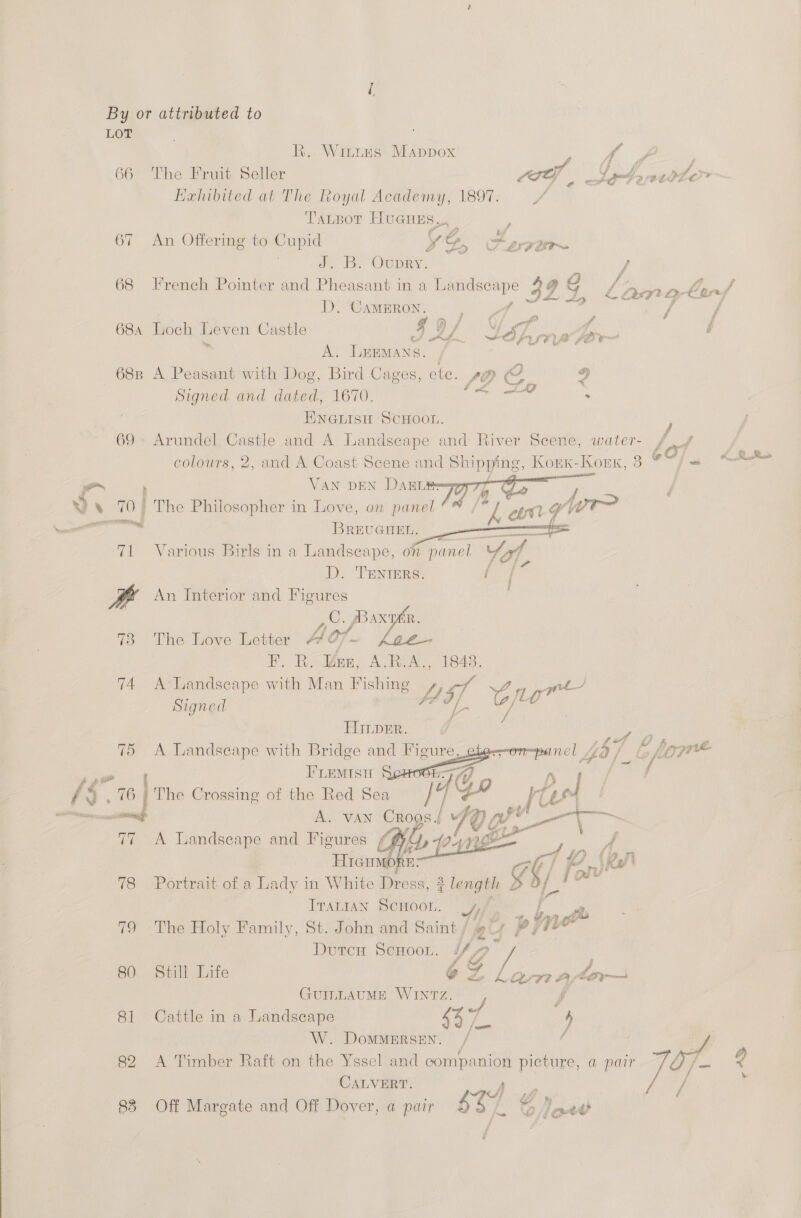 By or attributed to
LOT
R. WILLES MADDOX
66 The Fruit Seller
Exhibited at The Royal Academy, 1897.
TALBOT HUGHES.
67 An Offering to Cupid
J. B. OUDRY.
68 French Pointer and Pheasant in a Landscape
D. CAMERON.
68A Loch Leven Castle
A. LEEMANS.
68B A Peasant with Dog, Bird Cages, etc.
Signed and dated, 1670.
ENGLISH SCHOOL.
69 Arundel Castle and A Landscape and River Scene, water-
colours, 2, and A Coast Scene and Shipping, KOEK-KOEK, 3
VAN DEN
70 The Philosopher in Love, on panel
BREUGHEL.
71 Various Birls in a Landscape, on panel
D. TENIERS.
An Interior and Figures
C. BAXTER.
73 The Love Letter 40/- Lee
F. R. LEE, A.R.A., 1843.
74 A Landscape with Man Fishing
Signed
HILDER.
75 A Landscape with Bridge and Figure, etc. on panel
FLEMISH SCHOOL.
76 The Crossing of the Red Sea
A. VAN CROOS.
77 A Landscape and Figures
HIGHMORE.
78 Portrait of a Lady in White Dress, ¾ length
ITALIAN SCHOOL.
79 The Holy Family, St. John and Saint
DUTCH SCHOOL.
80 Still Life
GUILLAUME WINTZ.
81 Cattle in a Landscape
W. DOMMERSEN.
82 A Timber Raft on the Yssel and companion picture, a pair
CALVERT.
83 Off Margate and Off Dover, a pair